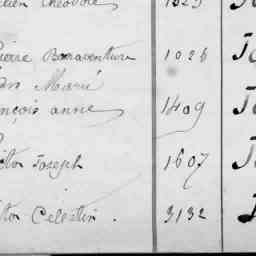 Théodore 1023
Pierre Bonaventure 1026
Marie
nçois anne 1409
ctor Joseph 1607
tor Célestin . 3132